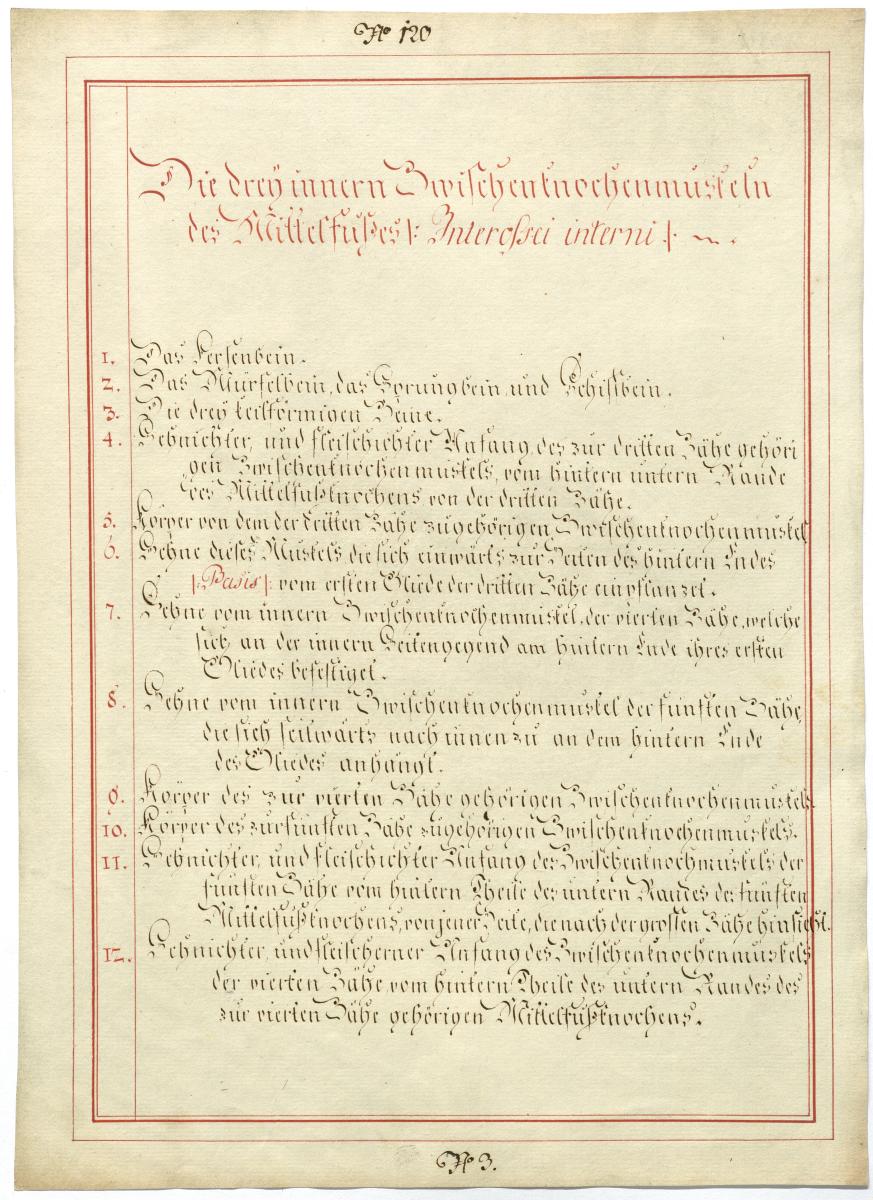 No 120
Die drey innern Zwischenknochenmuskeln
des Mittelfußes |: Interossei interni :|
1. Das Fersenbein.
2. Das Würfelbein, das Sprungbein, und Schifbein.
3. Die drey keilförmigen Beine.
4. Sehnichter, und fleischichter Anfang des zur dritten Zähe gehöri
gen Zwischenknochenmuskels, vom hintern untern Rande
des Mittelfußknochens von der dritten Zähe.
5. Körper von dem der dritten Zähe zugehörigen Zwischenknochenmuskel
6. Sehne dieses Muskels, die sich einwärts zur Seiten des hintern Endes
|: Basis :| vom ersten Gliede der dritten Zähe einpflanzet.
7. Sehne vom innern Zwischenknochenmuskel, der vierten Zähe, welche
sich an der innern Seitengegend am hintern Ende ihres ersten
Gliedes befestiget.
8. Sehne vom innern Zwischenknochenmuskel der fünften Zähe,
die sich seitwärts nach innen zu an dem hintern Ende
des Gliedes anhängt.
9. Körper des zur vierten Zähe gehörigen Zwischenknochenmuskels.
10. Körper des zur fünften Zähe zugehörigen Zwischenknochenmuskels.
11. Sehnichter, und fleischichter Anfang des Zwischenknochmuskels der
fünften Zähe vom hintern Theile des untern Randes des fünften
Mittelfußknochens, von jener Seite, die nach der grossen Zähe hinsieht.
12. Sehnichter, und fleischerner Anfang des Zwischenknochenmuskels
der vierten Zähe, vom hintern Theile des untern Randes des
zur vierten Zähe gehörigen Mittelfußknochens.
No 3.